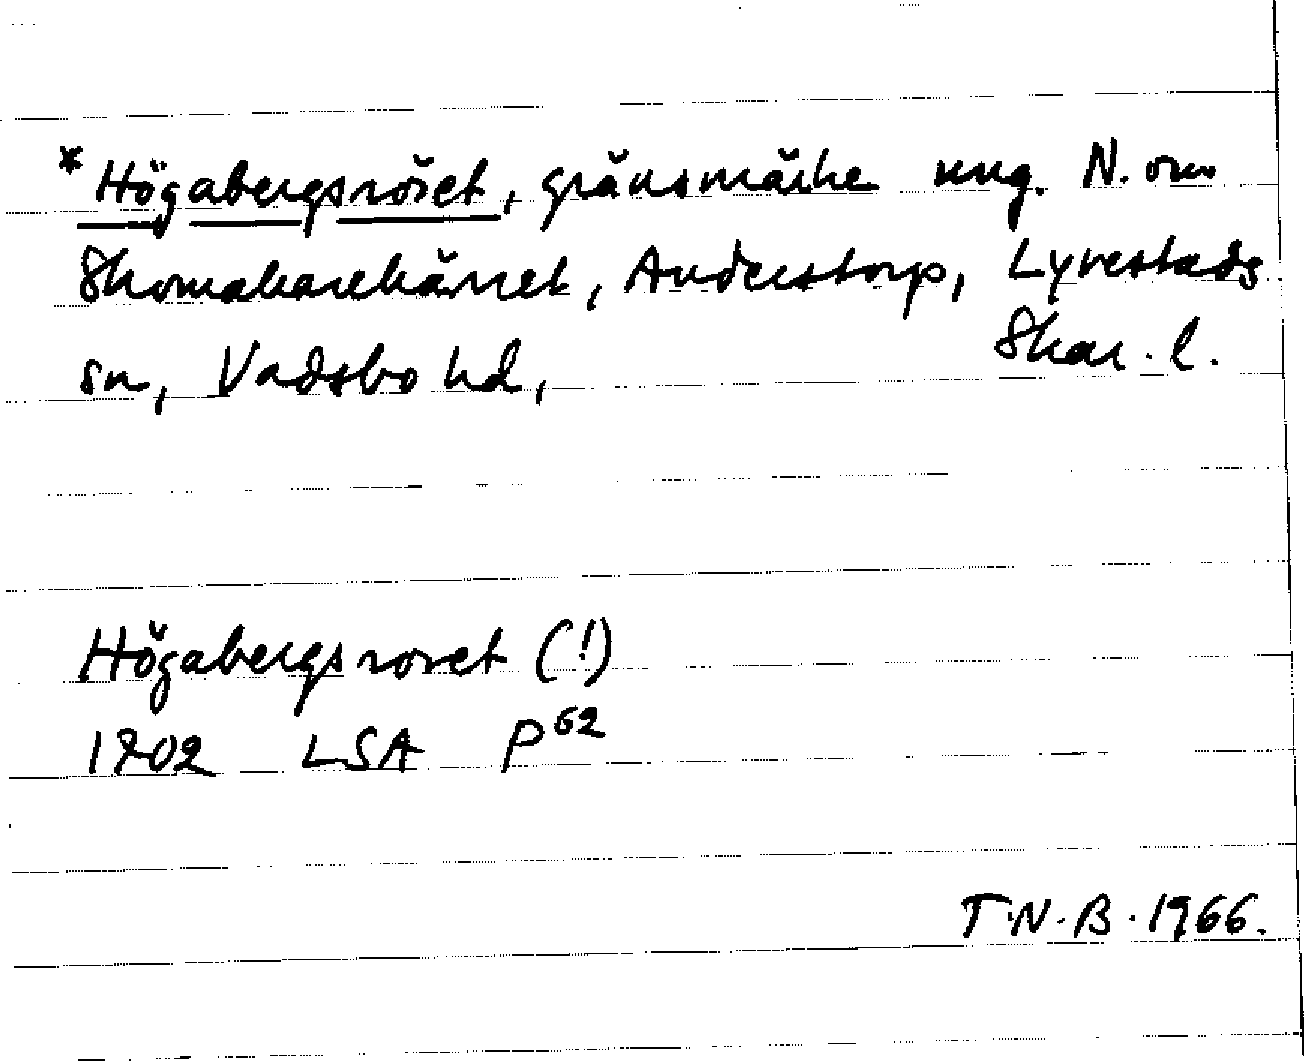 *Högabergsröset, gränsmärke ung. N. om
Skomakarekärret, Anderstorp, Lyrestads
sn, Vadsbo hd, Skar. l.
Högabergsroset (!)
1702 LSA P62
T.N.B. 1966.